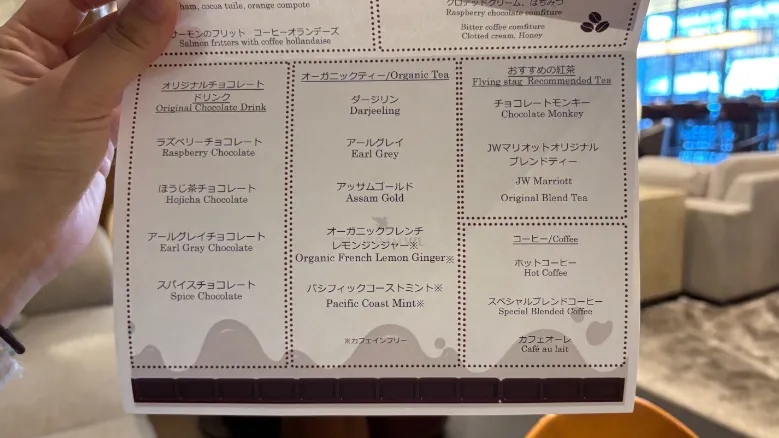 ham, cocoa tuile, orange compote
サーモンのフリット　コーヒーオランデーズ
Salmon fritters with coffee hollandaise
クロテッドクリーム、はちみつ
Raspberry chocolate comfiture
Bitter coffee comfiture
Clotted cream, Honey
オリジナルチョコレート
ドリンク
Original Chocolate Drink
ラズベリーチョコレート
Raspberry Chocolate
ほうじ茶チョコレート
Hojicha Chocolate
アールグレイチョコレート
Earl Gray Chocolate
スパイスチョコレート
Spice Chocolate
オーガニックティー/Organic Tea
ダージリン
Darjeeling
アールグレイ
Earl Grey
アッサムゴールド
Assam Gold
オーガニックフレンチ
レモンジンジャー※
Organic French Lemon Ginger※
パシフィックコーストミント※
Pacific Coast Mint※
※カフェインフリー
おすすめの紅茶
Flying stag Recommended Tea
チョコレートモンキー
Chocolate Monkey
JWマリオットオリジナル
ブレンドティー
JW Marriott
Original Blend Tea
コーヒー/Coffee
ホットコーヒー
Hot Coffee
スペシャルブレンドコーヒー
Special Blended Coffee
カフェオーレ
Café au lait